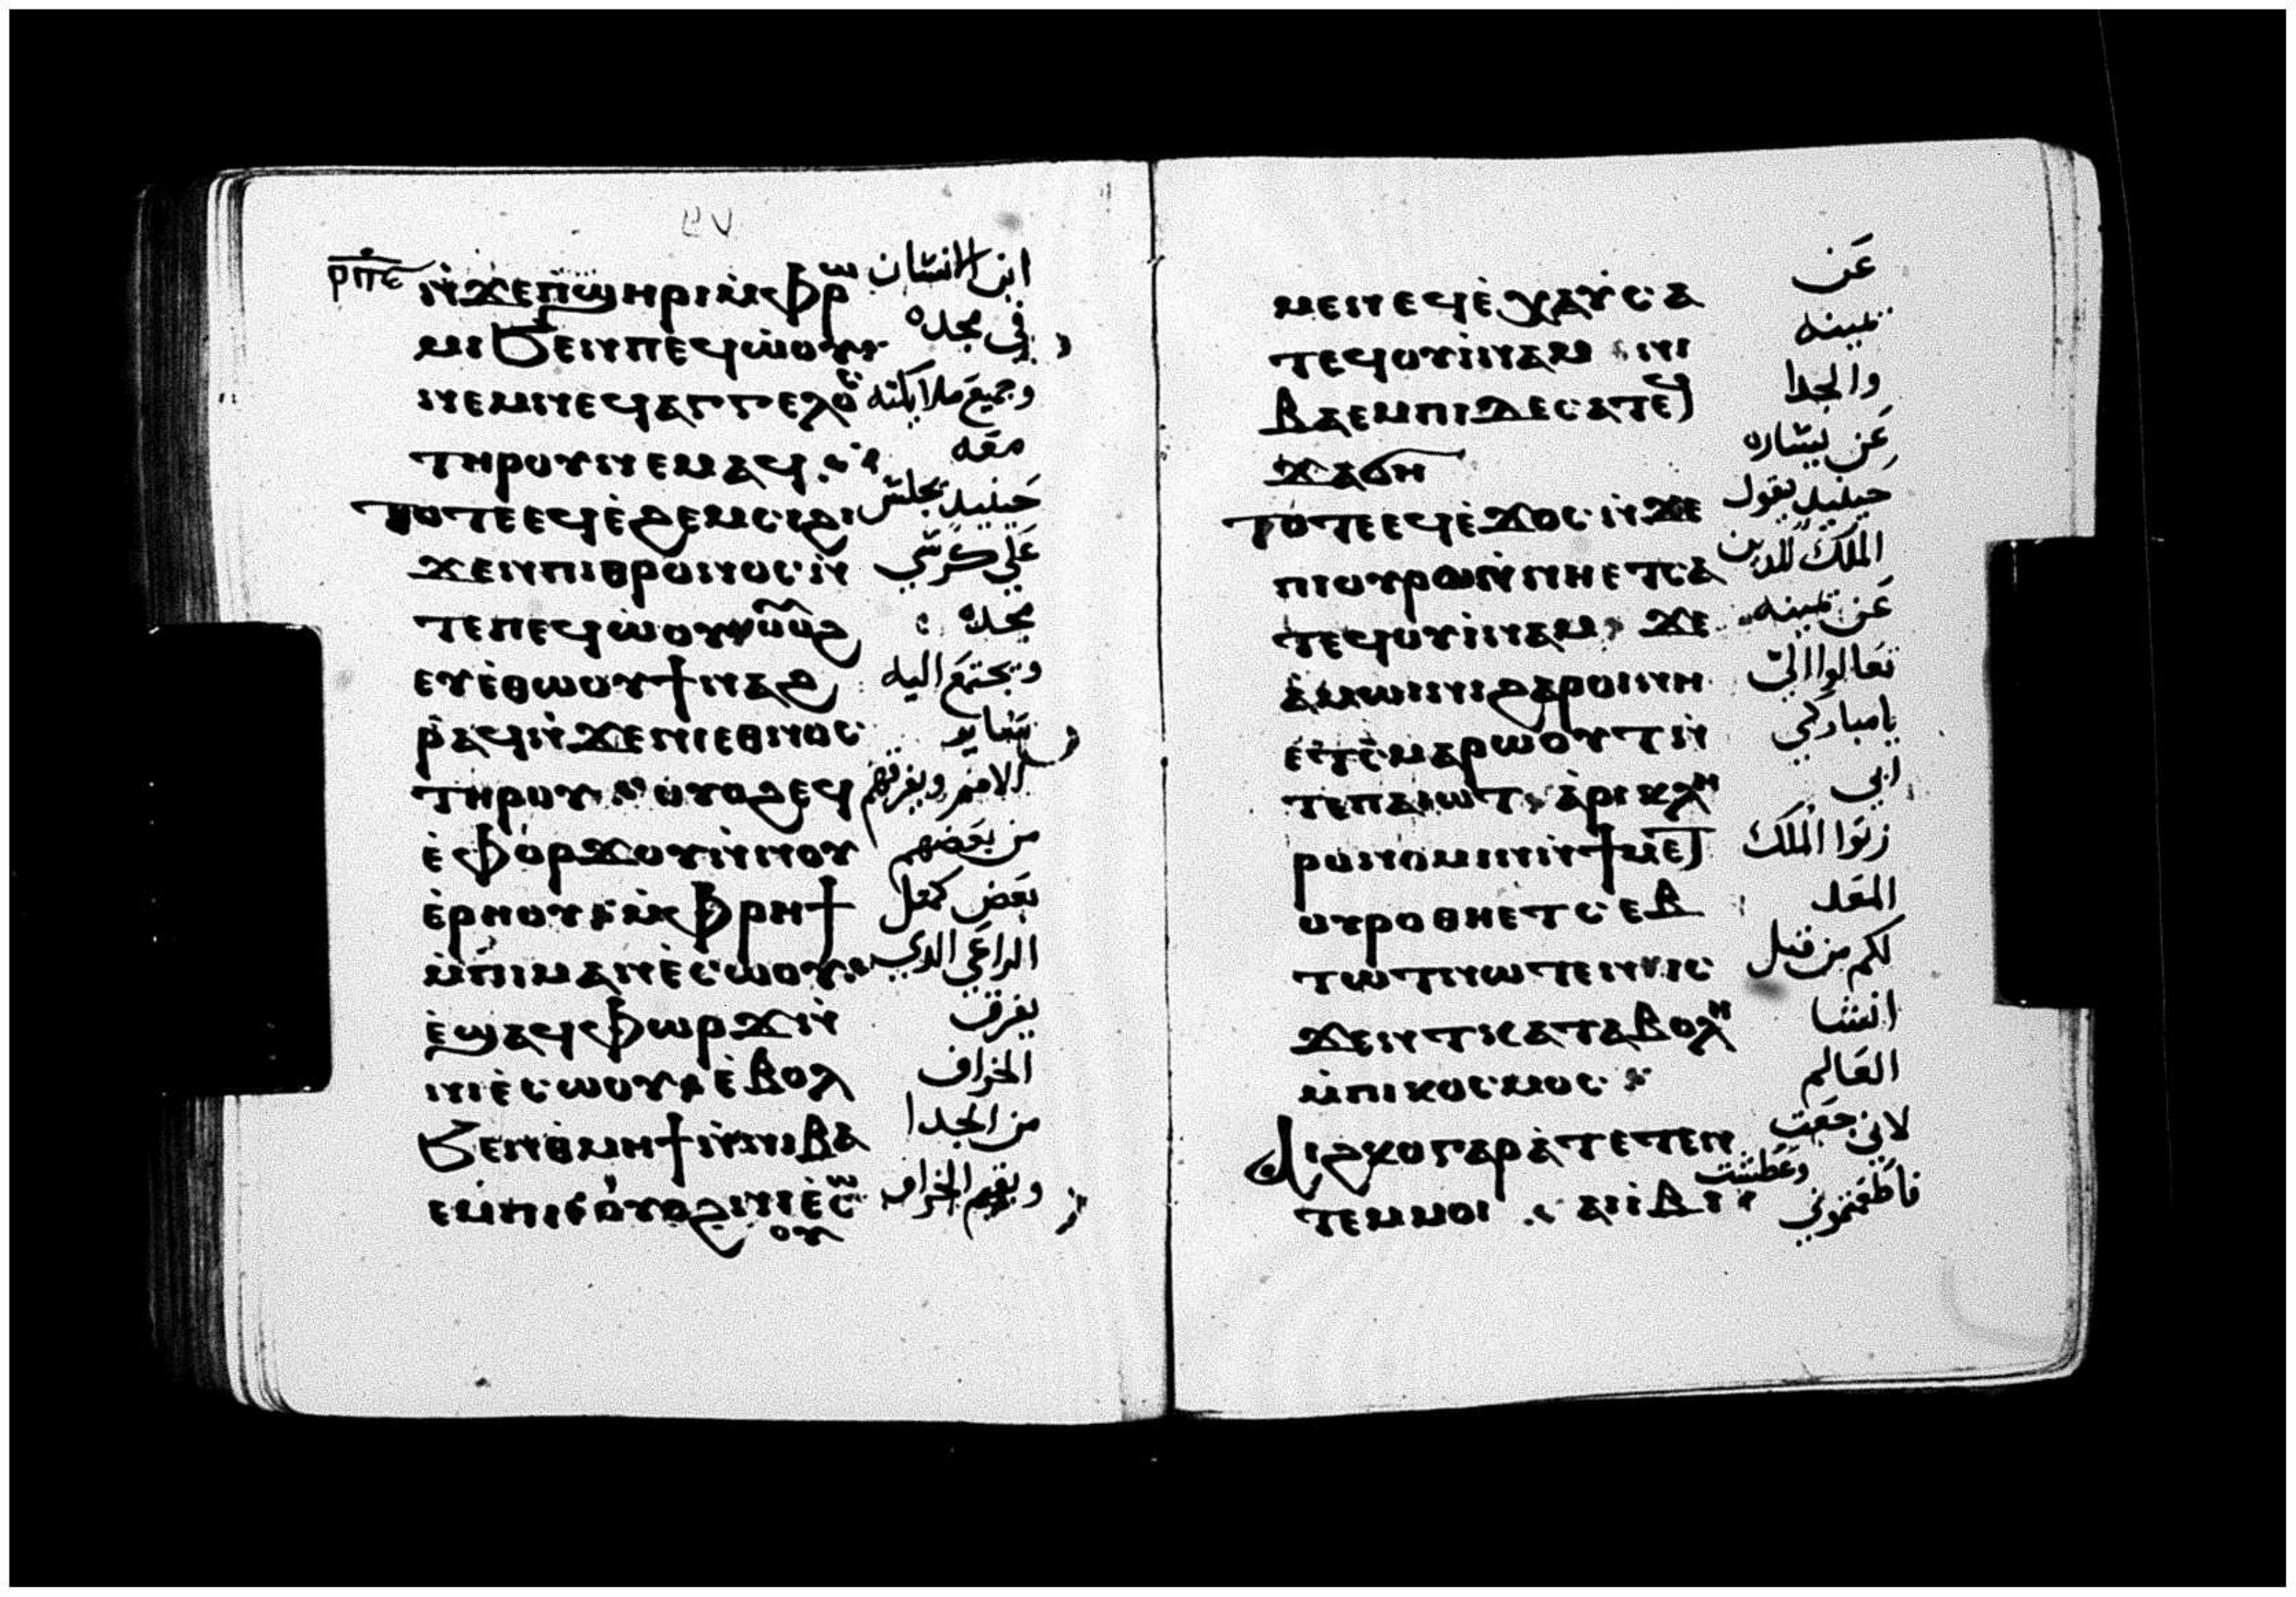 ⲣⲡⲉ
ⲛ̀ϫⲉⲡϣⲏⲣⲓⲙ̀ⲫⲣⲱ ابن الانسان
ⲙⲓϧⲉⲛⲡⲉϥⲱ̀ⲟⲩ في مجده
ⲛⲉⲙⲛⲉϥⲁⲅⲅⲉⲗⲟⲥ وجميع ملايكته
ⲧⲏⲣⲟⲩⲛⲉⲙⲁϥ معه
ⲧⲟⲧⲉⲉϥⲉ̀ϩⲉⲙⲥⲓϩⲓ حينيد يجلس
ϫⲉⲛⲡⲓⲑⲣⲟⲛⲟⲥⲛ̀ علي كرسي
ⲧⲉⲡⲉϥⲱⲟⲩ ⲟⲩⲟϩ مجده
ⲉⲩⲉ̀ⲑⲱⲟⲩϯⲛⲁϩ وتجتمع اليه
ⲣⲁϥⲛ̀ϫⲉⲛⲓⲉⲑⲛⲟⲥ ساير
ⲧⲏⲣⲟⲩ ⲟⲩⲟϩⲉϥ الامم ويفرقهم
ⲉ̀ⲫⲟⲣϫⲟⲩⲛ̀ⲛⲟⲩ من بعضهم
ⲉ̀ⲣⲏⲟⲩ ⲙ̀ⲫⲣⲏϯ بعض كمثل
ⲙ̀ⲡⲓⲙⲁⲛⲉ̀ⲥⲱⲟⲩ الراعي الدي
ⲉ̀ϣⲁϥⲫⲱⲣϫⲛ̀ يفرق
ⲛⲓⲉ̀ⲥⲱⲟⲩ ⲉ̀ⲃⲟⲗ الخراف
ϧⲉⲛⲑ̀ⲙⲏϯⲛ̀ⲛⲓⲃⲁ من الجدا
ⲉⲙⲡⲓ ⲟⲩⲟϩⲛⲓⲉ̀ⲥⲱ ويقيم الخراف
ⲟⲩ
ⲙⲉⲛⲉϥⲉ̀ⲭⲁⲩⲥⲁ عن
ⲧⲉϥⲟⲩⲓ̀ⲛⲁⲙ ⲛⲓ يمينه
ⲃⲁⲉⲙⲡⲓⲇⲉⲥⲁⲧⲉϥ والجدا
ϫⲁϭⲏ عن يساره
ⲧⲟⲧⲉⲉϥⲉ̀ϫⲟⲥⲛ̀ϫⲉ حينيد يقول
ⲡⲓⲟⲩⲣⲱⲛ̀ⲛⲏⲉⲧⲥⲁ الملك للدين
ⲧⲉϥⲟⲩⲓ̀ⲛⲁⲙ ϫⲉ عن يمينه
ⲁ̀ⲙⲱⲓⲛⲓϩⲁⲣⲟⲓⲛⲏ تعالوا الي
ⲉⲧⲥ̀ⲙⲁⲣⲱⲟⲩⲧⲛ̀ يا مباركي
ⲧⲉⲡⲁⲓⲱⲧ ⲁ̀ⲣⲓⲕⲗⲏ ابي
ⲣⲟⲛⲟⲙⲓⲛⲛ̀ϯⲙⲉⲧ رتوا الملك
ⲟⲩⲣⲟⲑⲏⲉⲧⲥⲉⲃ المعد
ⲧⲱⲧⲛⲱⲧⲉⲛ ⲓⲥ لكم من قبل
ϫⲉⲛⲧⲕⲁⲧⲁⲃⲟⲗⲏ انشا
ⲙ̀ⲡⲓⲕⲟⲥⲙⲟⲥ العالم
ⲁⲓϩⲕⲟⲅⲁⲣⲁ̀ⲧⲉⲧⲉⲛ لاني جعت
ⲧⲉⲙⲙⲟⲓ ⲁⲓⲓ̀ⲃⲓ فاطعمتموني وعطشت